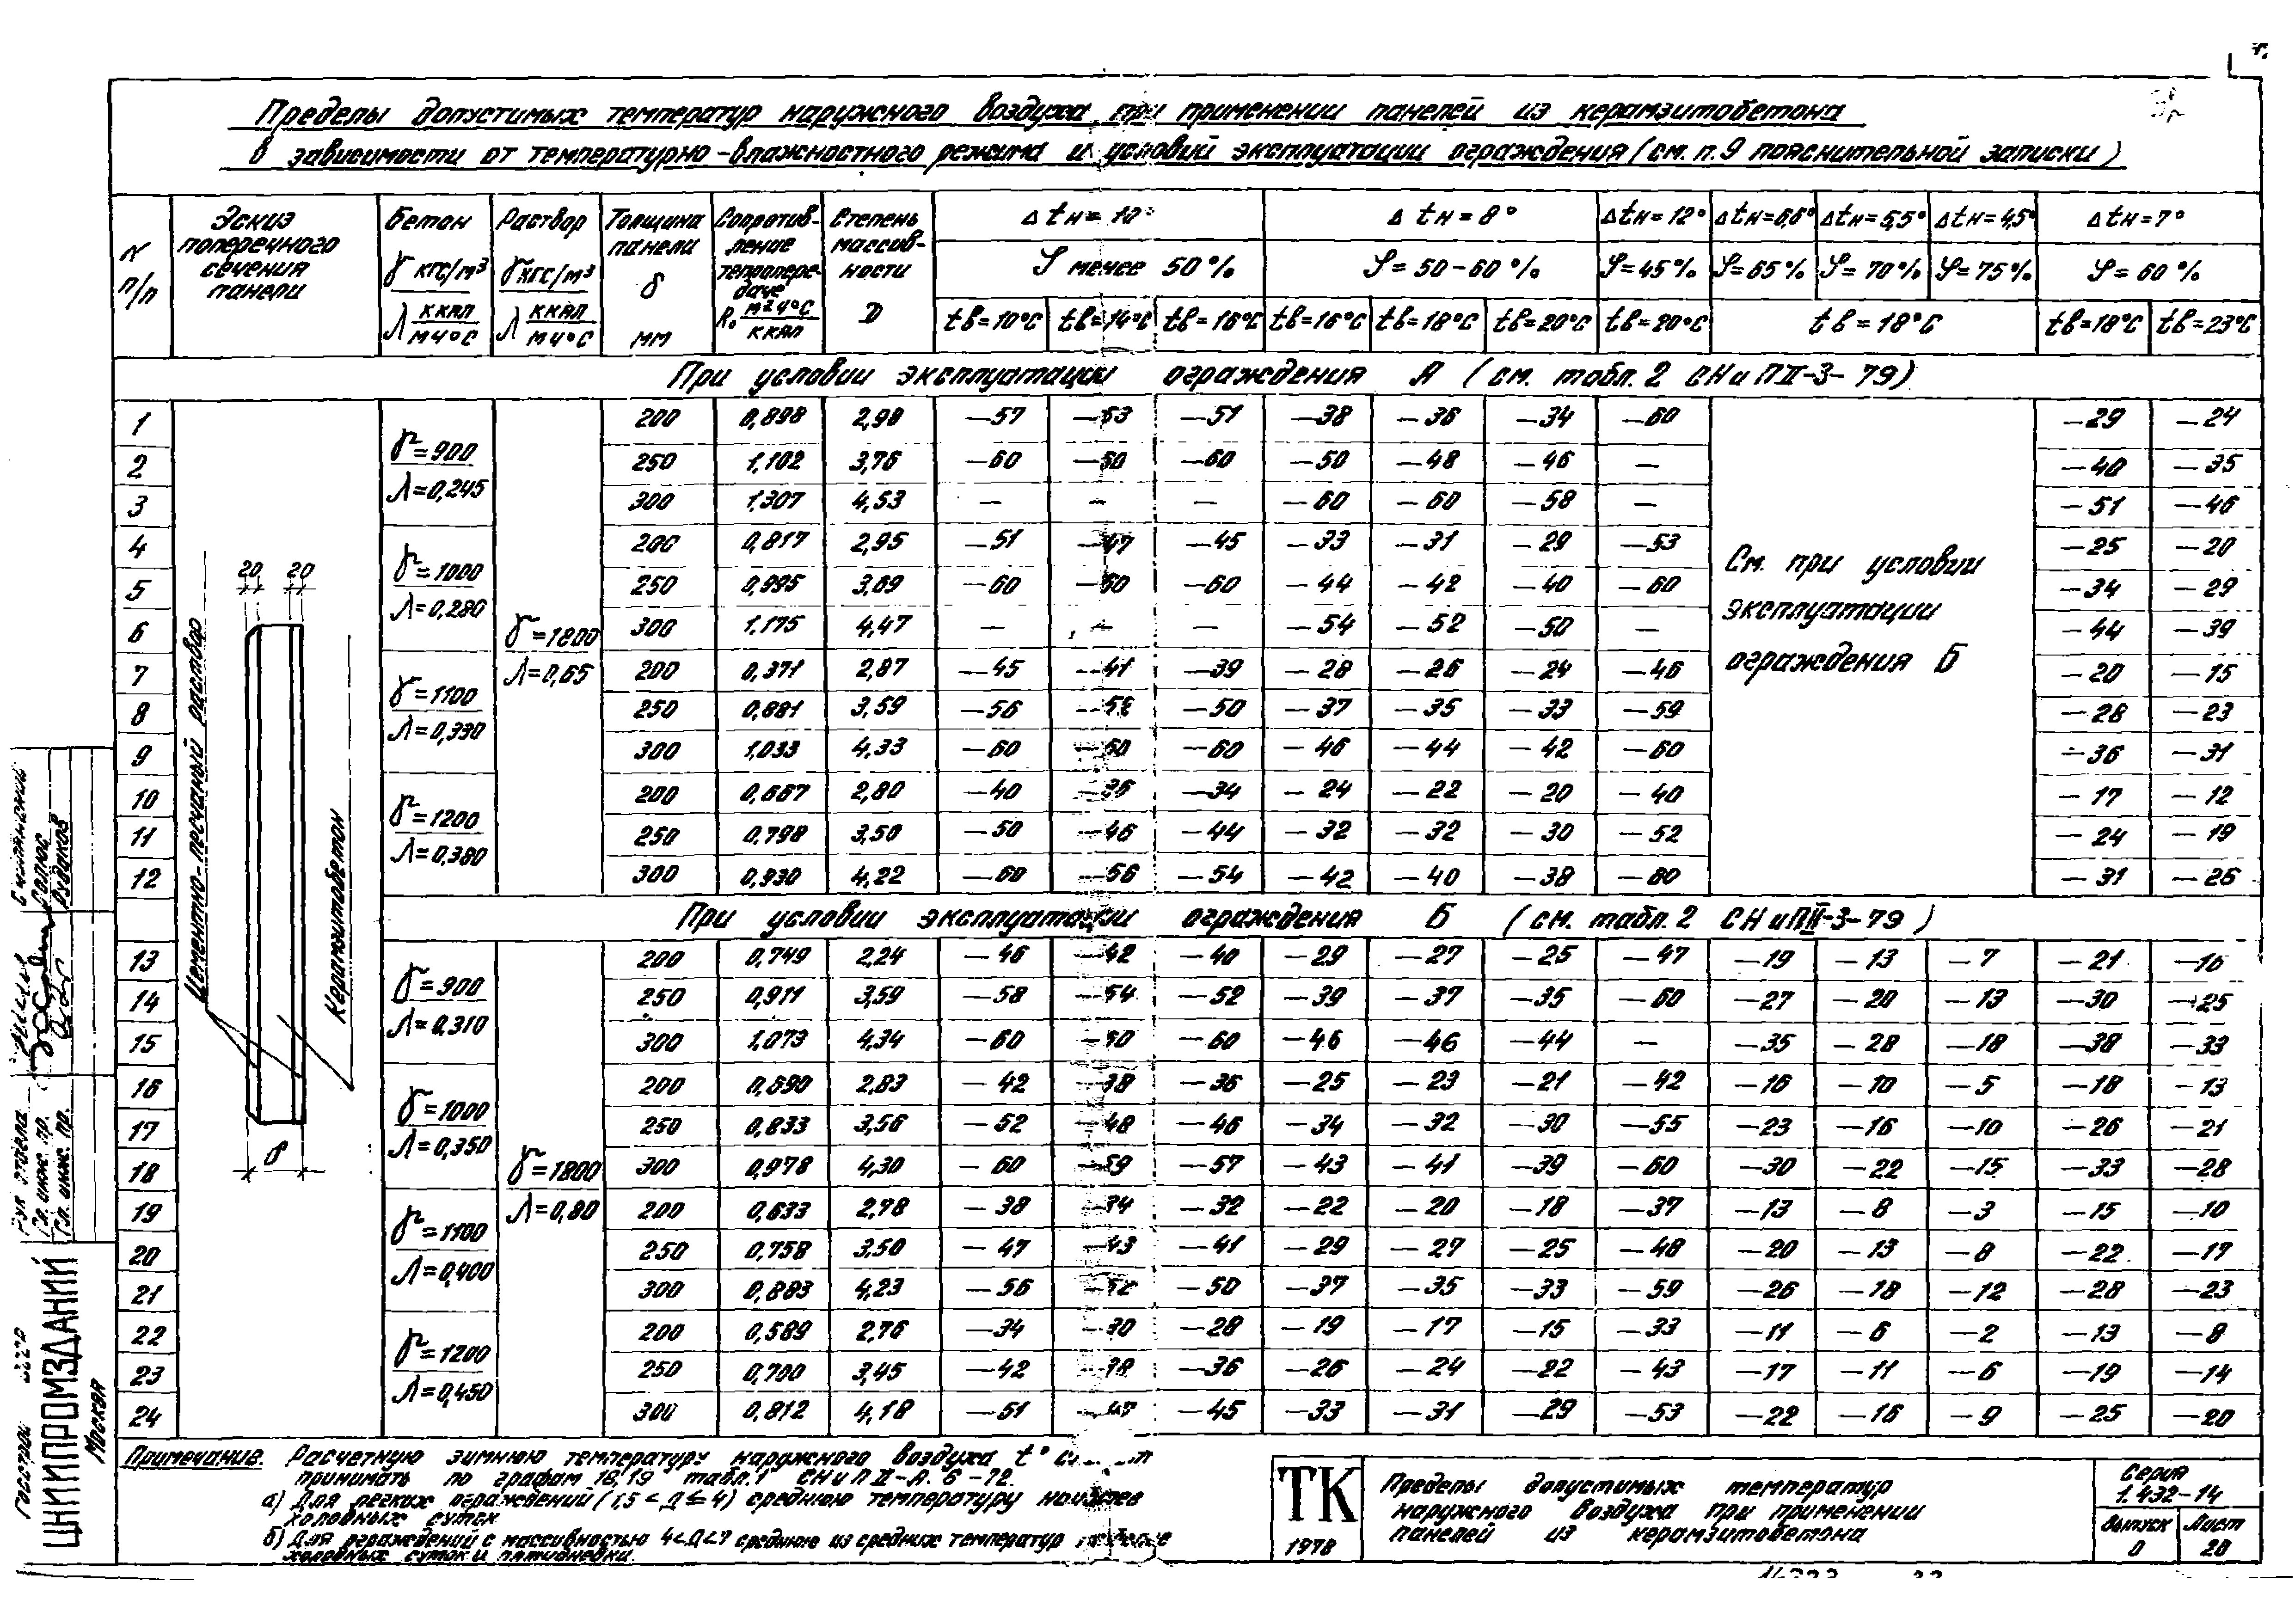 Пределы допустимых температур наружного воздуха при применении панелей из керамзитобетона
в зависимости от температурно-влажностного режима и условий эксплуатации ограждения (см. п.9 пояснительной записки)
N п/п | Эскиз поперечного сечения панели | Бетон γ кгс/м³ λ ккал/м ч °С | Раствор γ кгс/м³ λ ккал/м ч °С | Толщина панели δ мм | Сопротивление теплопередаче R₀ м² ч °С/ккал | Степень массивности D | Δtн=10° | Δtн=8° | Δtн=12° | Δtн=6,6° | Δtн=5,5° | Δtн=4,5° | Δtн=7°
φ менее 50% | φ=50-60% | φ=45% | φ=65% | φ=70% | φ=75% | φ=60%
tв=10°С | tв=14°С | tв=16°С | tв=16°С | tв=18°С | tв=20°С | tв=20°С | tв=18°С | tв=18°С | tв=23°С
При условии эксплуатации ограждения А (см. табл. 2 СНиП II-3-79)
1 | γ=900 λ=0,245 | γ=1800 λ=0,65 | 200 | 0,898 | 2,98 | -57 | -53 | -51 | -38 | -36 | -34 | -60 | См. при условии эксплуатации ограждения Б | -29 | -24
2 | 250 | 1,102 | 3,76 | -60 | -60 | -60 | -50 | -48 | -46 | - | -40 | -35
3 | 300 | 1,307 | 4,53 | - | - | - | -60 | -60 | -58 | - | -51 | -46
4 | γ=1000 λ=0,280 | 200 | 0,817 | 2,95 | -51 | -47 | -45 | -33 | -31 | -29 | -53 | -25 | -20
5 | 250 | 0,995 | 3,69 | -60 | -60 | -60 | -44 | -42 | -40 | -60 | -34 | -29
6 | 300 | 1,175 | 4,47 | - | - | - | -54 | -52 | -50 | - | -44 | -39
7 | γ=1100 λ=0,330 | 200 | 0,371 | 2,87 | -45 | -41 | -39 | -28 | -26 | -24 | -46 | -20 | -15
8 | 250 | 0,881 | 3,59 | -56 | -52 | -50 | -37 | -35 | -33 | -59 | -28 | -23
9 | 300 | 1,033 | 4,33 | -60 | -60 | -60 | -46 | -44 | -42 | -60 | -36 | -31
10 | γ=1200 λ=0,380 | 200 | 0,667 | 2,80 | -40 | -36 | -34 | -24 | -22 | -20 | -40 | -17 | -12
11 | 250 | 0,798 | 3,50 | -50 | -46 | -44 | -32 | -32 | -30 | -52 | -24 | -19
12 | 300 | 0,930 | 4,22 | -60 | -56 | -54 | -42 | -40 | -38 | -60 | -31 | -26
При условии эксплуатации ограждения Б (см. табл. 2 СНиП II-3-79)
13 | γ=900 λ=0,310 | γ=1800 λ=0,80 | 200 | 0,749 | 2,24 | -46 | -42 | -40 | -29 | -27 | -25 | -47 | -19 | -13 | -7 | -21 | -16
14 | 250 | 0,911 | 3,59 | -58 | -54 | -52 | -39 | -37 | -35 | -60 | -27 | -20 | -13 | -30 | -25
15 | 300 | 1,073 | 4,34 | -60 | -60 | -60 | -46 | -46 | -44 | - | -35 | -28 | -18 | -38 | -33
16 | γ=1000 λ=0,350 | 200 | 0,690 | 2,83 | -42 | -38 | -36 | -25 | -23 | -21 | -42 | -16 | -10 | -5 | -18 | -13
17 | 250 | 0,833 | 3,56 | -52 | -48 | -46 | -34 | -32 | -30 | -55 | -23 | -16 | -10 | -26 | -21
18 | 300 | 0,978 | 4,30 | -60 | -59 | -57 | -43 | -41 | -39 | -60 | -30 | -22 | -15 | -33 | -28
19 | γ=1100 λ=0,400 | 200 | 0,633 | 2,78 | -38 | -34 | -32 | -22 | -20 | -18 | -37 | -13 | -8 | -3 | -15 | -10
20 | 250 | 0,758 | 3,50 | -47 | -43 | -41 | -29 | -27 | -25 | -48 | -20 | -13 | -8 | -22 | -17
21 | 300 | 0,883 | 4,23 | -56 | -52 | -50 | -37 | -35 | -33 | -59 | -26 | -18 | -12 | -28 | -23
22 | γ=1200 λ=0,450 | 200 | 0,589 | 2,76 | -34 | -30 | -28 | -19 | -17 | -15 | -33 | -11 | -6 | -2 | -13 | -8
23 | 250 | 0,700 | 3,45 | -42 | -38 | -36 | -26 | -24 | -22 | -43 | -17 | -11 | -6 | -19 | -14
24 | 300 | 0,812 | 4,18 | -51 | -47 | -45 | -33 | -31 | -29 | -53 | -22 | -16 | -9 | -25 | -20
20 20
Цементно-песчаный раствор
Керамзитобетон
δ
Примечание. Расчетную зимнюю температуру наружного воздуха t°
принимать по графам 18,19 табл.1 СНиП II-А.6-72.
а) Для легких ограждений (1,5 < Д ≤ 4) среднюю температуру наиболее
холодных суток
б) Для ограждений с массивностью 4<Д<7 среднюю из средних температур
холодных суток и пятидневки.
ТК
1978
Пределы допустимых температур
наружного воздуха при применении
панелей из керамзитобетона
Серия
1.432-14
Выпуск Лист
0 20
Госстрой СССР
ЦНИИПРОМЗДАНИЙ
Москва
Рук. отдела
Гл. инж. пр.
Гл. инж. пр.
Рудаков